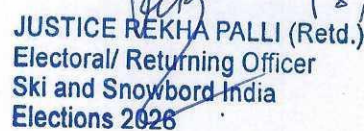 JUSTICE REKHA PALLI (Retd.)
Electoral/ Returning Officer
Ski and Snowbord India
Elections 2026